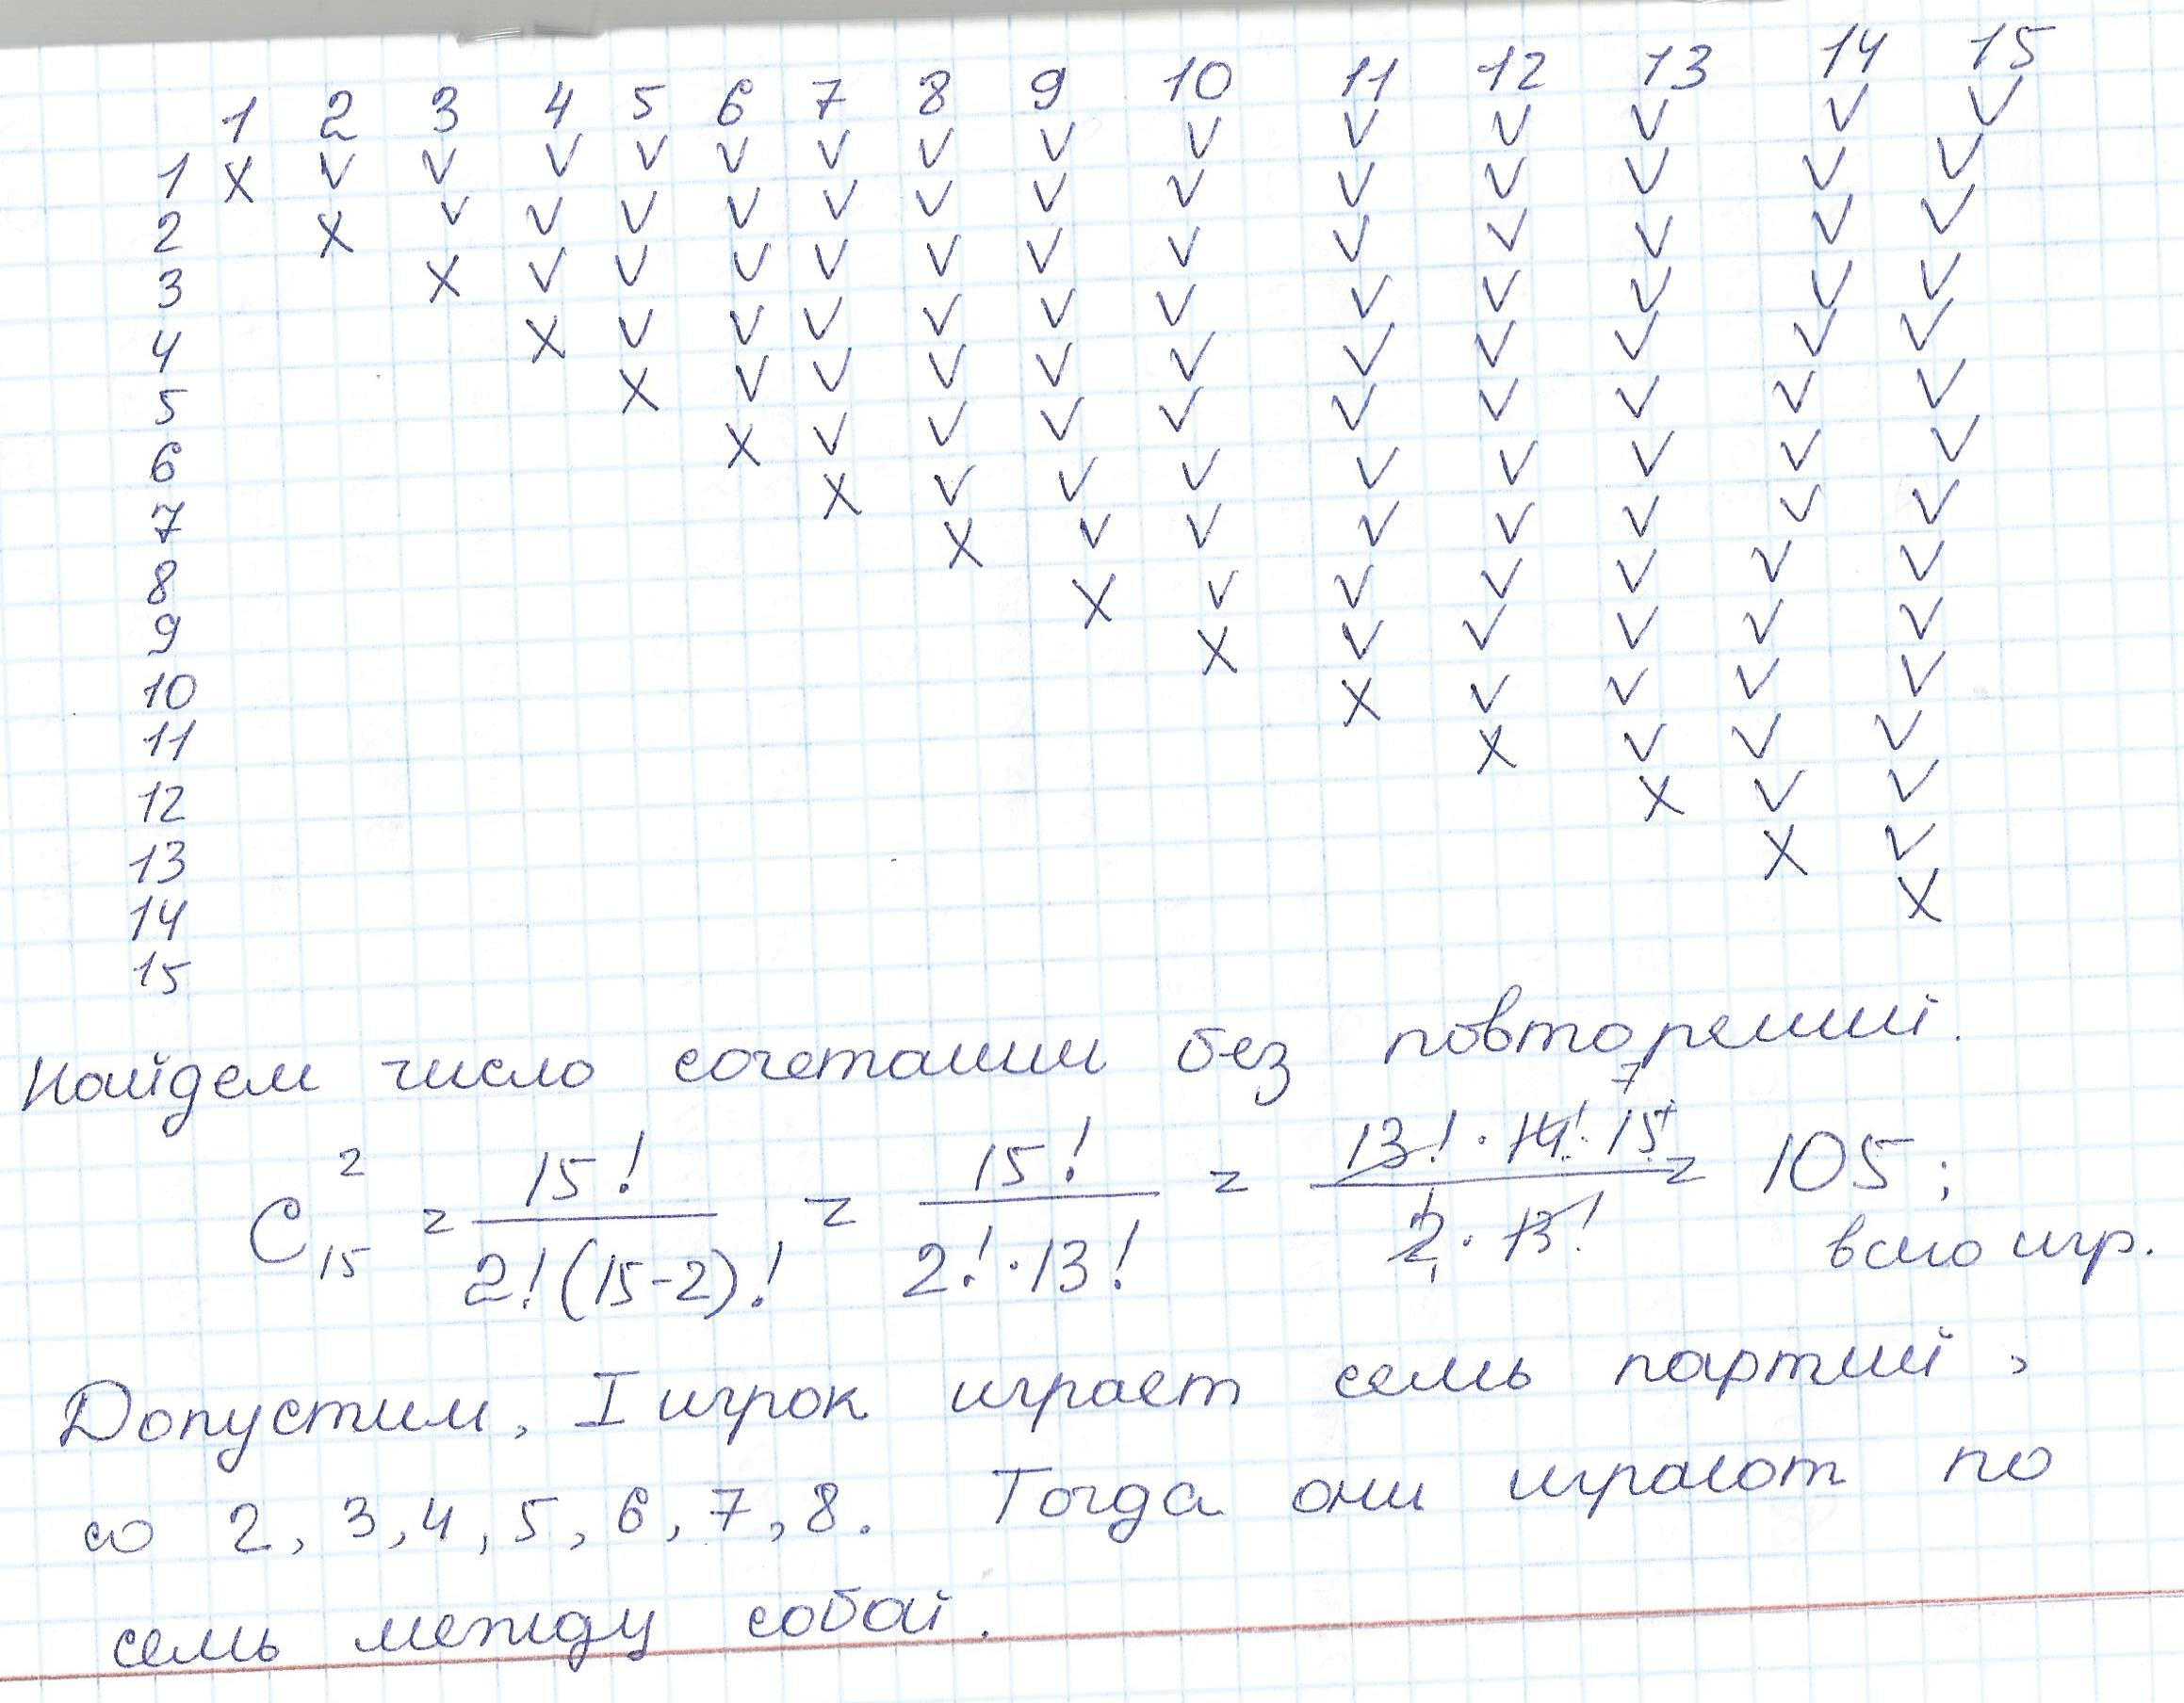 1 2 3 4 5 6 7 8 9 10 11 12 13 14 15
1 X V V V V V V V V V V V V V V
2 X V V V V V V V V V V V V V
3 X V V V V V V V V V V V V
4 X V V V V V V V V V V V
5 X V V V V V V V V V V
6 X V V V V V V V V V
7 X V V V V V V V V
8 X V V V V V V V
9 X V V V V V V
10 X V V V V V
11 X V V V V
12 X V V V
13 X V V
14 X V
15 X
Найдем число сочетании без повторений.
C₁₅² = 15! / 2!(15-2)! = 15! / 2!·13! = 13!·14·15 / 2·13! = 105; 
всего игр.
Допустим, I игрок играет семь партий,
со 2, 3, 4, 5, 6, 7, 8. Тогда они играют по
семь между собой.